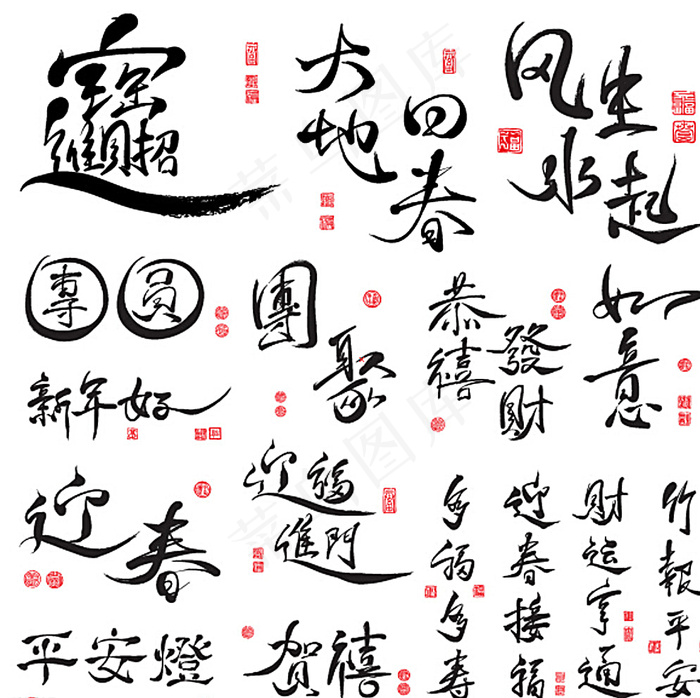 招財進寶
大地回春
风生水起
團圓
團聚
恭禧發財
如意
新年好
迎春
迎福進門
多福多壽
迎春接福
財运亨通
竹報平安
平安燈
贺禧